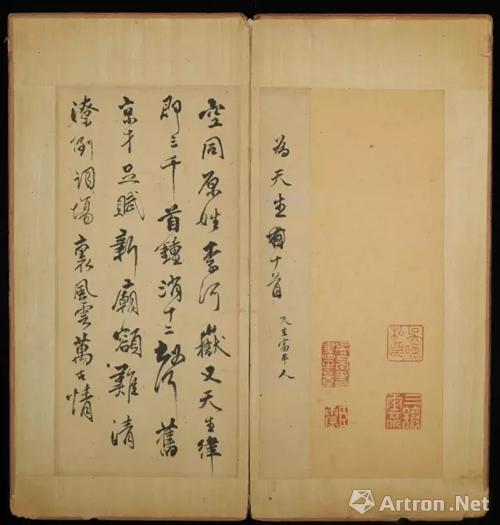 為天生十首
天生富平人
空同原姓李河嶽又天生緯
即三千首鐘消十二舊
京才足賦新廟額難清
潦倒詞場裏風雲萬古情
Artron.Net